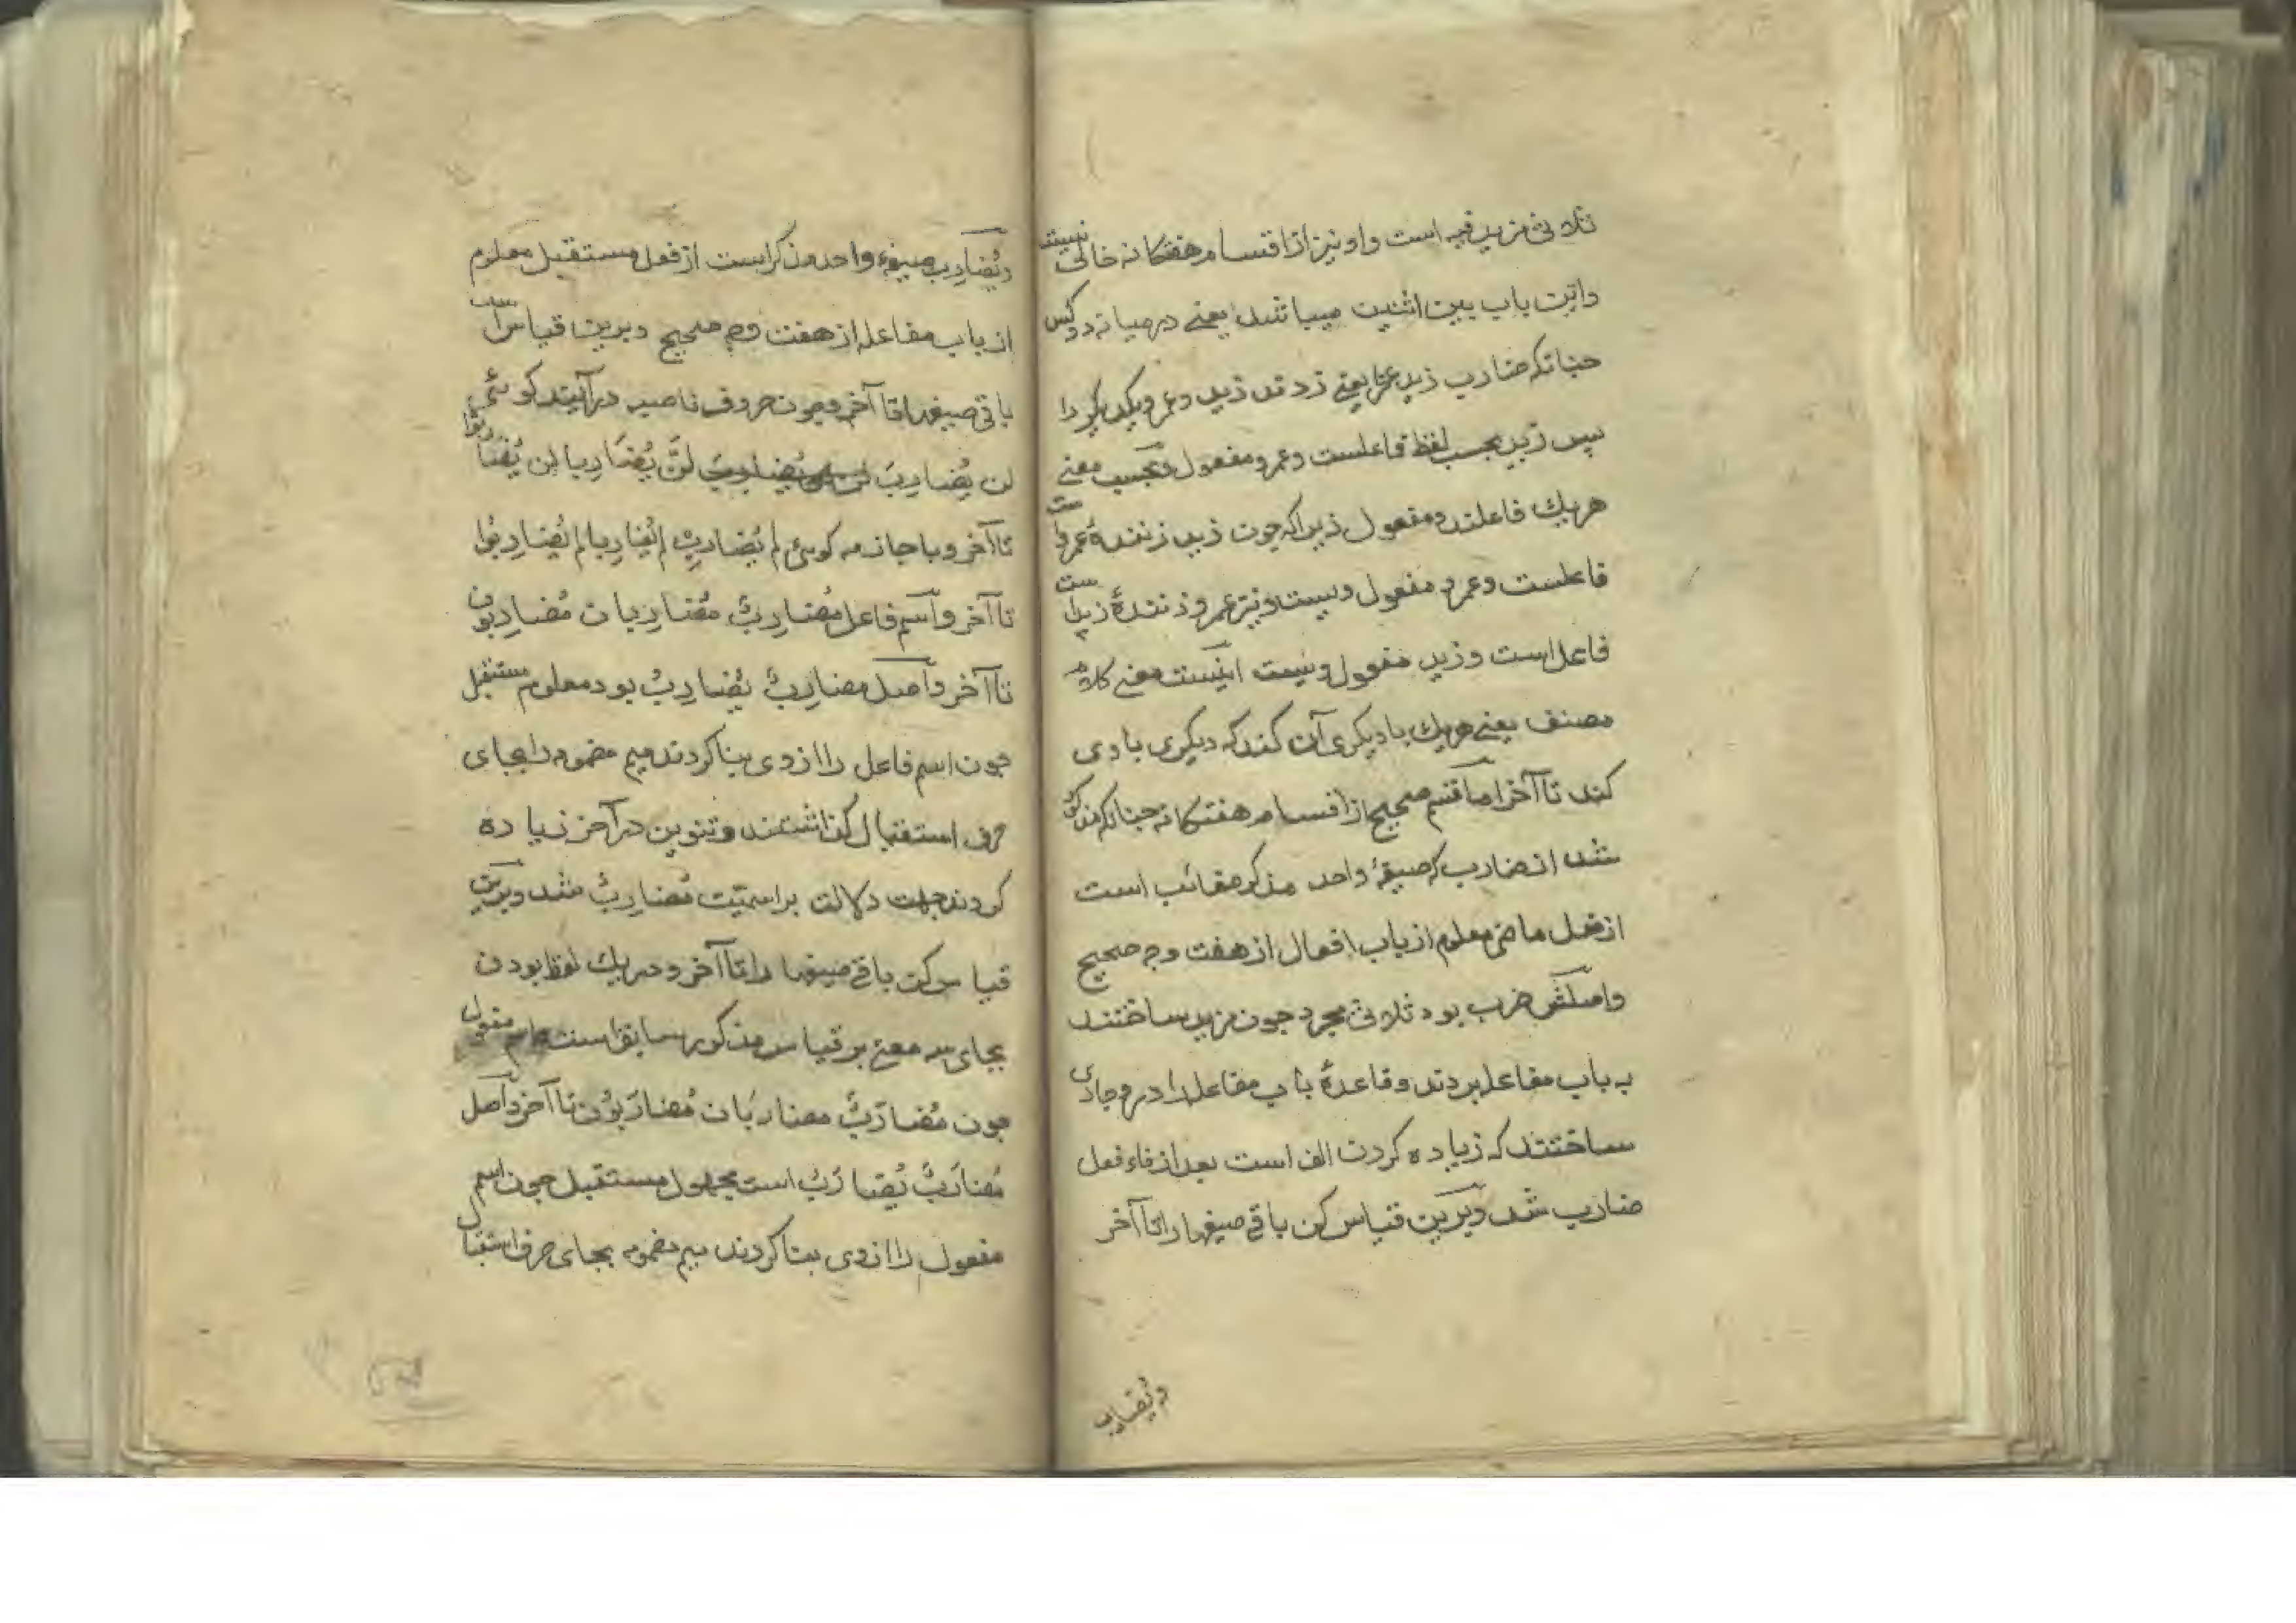 ثلاثی مزید فیه است واو نیز از اقسام هفتکانه خالی نیست
واین باب بین اثنین میباشد یعنی در میانه دو کس
جنانکه ضارب زید عمرا یعنی زدند زید وعمرو یکدیکر را
پس زید بحسب لفظ فاعلست وعمرو مفعول وبحسب معنی
هریك فاعلند ومفعول زیراکه چون زید زنندۀ عمرو است
فاعلست وعمرو مفعول ویست ونیز عمرو زنندۀ زید است
فاعل است وزید مفعول ویست اینست معنی کلام
مصنف یعنی هریك با دیکری آن کند که دیکری با وی
کند تا آخر اما قسم صحیح از اقسام هفتکانه جنانکه مذکور
شد از ضارب که صیغۀ واحد مذکر مغائب است
از فعل ماضی معلوم از باب افعال از هفت وجه صحیح
واصلش ضرب بود ثلاثی مجرد جون مزید ساختند
به باب مفاعله بردند وقاعدۀ باب مفاعله را درو جاری
ساختند که زیاده کردن الف است بعد از فاء فعل
ضارب شد وبرین قیاس کن باقی صیغها را تا آخر
ویُضارب
ویُضارِب صیغۀ واحد مذکر است از فعل مستقبل معلوم
از باب مفاعله از هفت وجه صحیح وبرین قیاس است
باقی صیغها تا آخر وجون حروف ناصبه در آیند کوئی
لن یُضارِبَ لن یُضَارِبا لن یُضاربوا
تا آخر وبا جازمه کوئی لم یُضارِبْ لم یُضارِبا لم یُضارِبُوا
تا آخر واسم فاعل مُضارِبٌ مُضارِبان مُضارِبون
تا آخر واصل مضارِبٌ یُضارِبُ بود معلوم مستقبل
جون اسم فاعل را از وی بنا کردند میم مضمومه را بجای
حرف استقبال کذاشتند وتنوین در آخر زیاده
کردند جهت دلالت بر اسمیّت مُضارِبٌ شد وبرین
قیاس کن باقی صیغها را تا آخر ودر یك لفظ بودن
بجای سه معنی بر قیاس مذکور سابق است واسم مفعول
جون مُضارَبٌ مضارَبان مُضارَبُون تا آخر واصل
مُضارَبٌ یُضارَبُ است مجهول مستقبل جون اسم
مفعول را از وی بنا کردند میم مضمومه بجای حرف استقبال